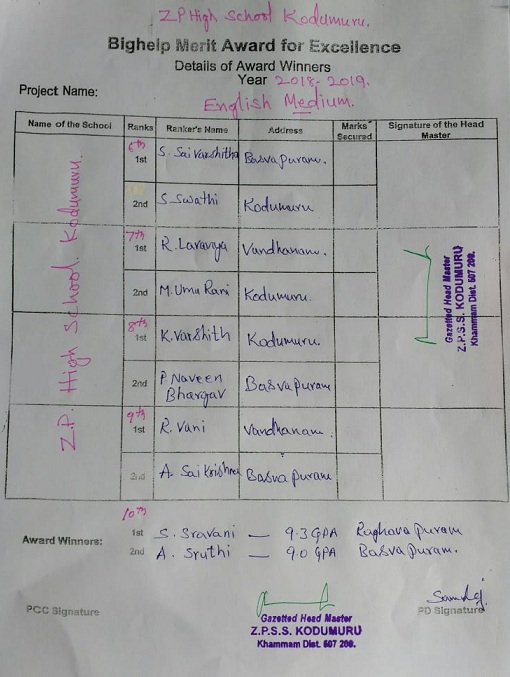 Z P High School Kodumuru.
Bighelp Merit Award for Excellence
Details of Award Winners
Year 2018-2019.
Project Name:
English Medium.
Name of the School Ranks Ranker's Name Address Marks Secured Signature of the Head Master
Z.P. High School Kodumuru.
6th
1st S. Sai Varshitha Basvapuram.
2nd S. Swathi Kodumuru
7th
1st R. Lavanya Vandhanam.
2nd M. Uma Rani Kodumuru.
8th
1st K. Varshith Kodumuru.
2nd P. Naveen Bhargav Basvapuram
9th
1st R. Vani Vandhanam.
2nd A. Sai Krishna Basvapuram
Gazetted Head Master
Z.P.S.S. KODUMURU
Khammam Dist. 507 208.
10th
Award Winners:
1st S. Sravani — 9.3 GPA Raghavapuram
2nd A. Sruthi — 9.0 GPA Basvapuram.
PCC Signature
Gazetted Head Master
Z.P.S.S. KODUMURU
Khammam Dist. 507 208.
PD Signature